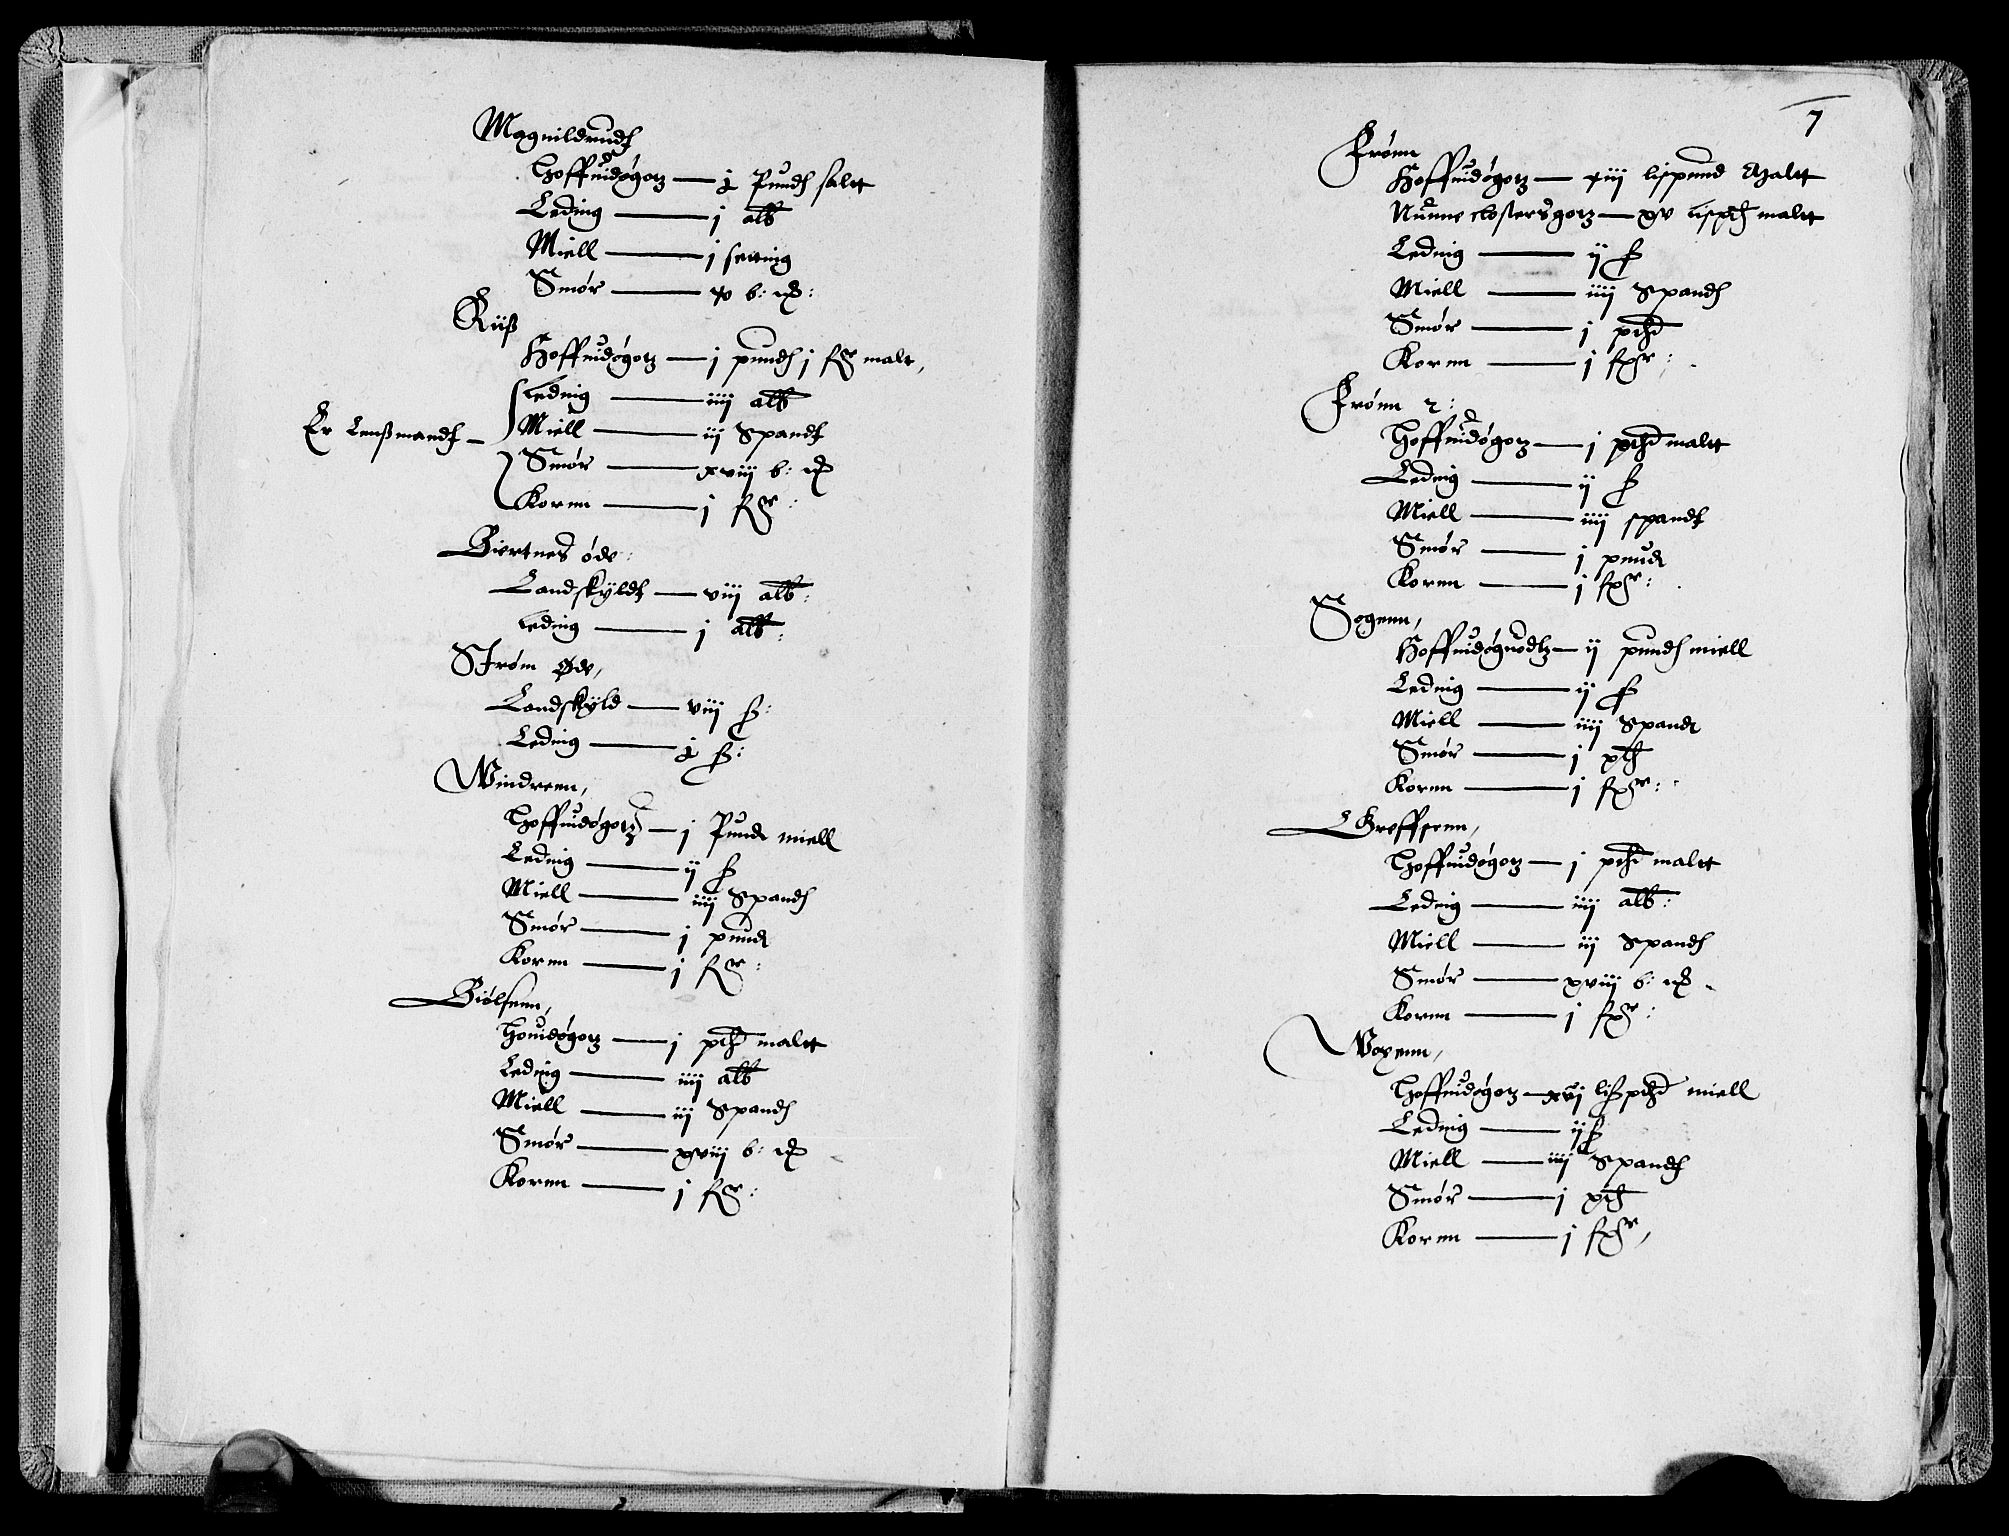 Magnildrudt
Hoffuidøgotz — j Pundt saltt
Leding — j alb
Miell — j setting
Smør — xv b: 
Riiß
Hoffuidøgotz — j pundt j malt,
Leding — iiij alb
Er Lenßmandt — Miell — iij Spandt
Smør — xviij b: 
Kornn — j
Giertnes øde:
Landskyldt — viij alb:
Leding — j alb:
Strøm Øde,
Landskyld — viij ß:
Leding — j ß:
Windrenn,
Hoffuidøgotz — j Pundt miell
Leding — ij ß
Miell — iiij Spandt
Smør — j pundt
Kornn — j
Giølsenn,
Houidøgotz — j pthd maltt
Leding — iiij alb
Miell — iij Spandt
Smør — xviij b: 
Kornn — j
7
Frønn
Hoffuidøgotz — xiij lispund Maltt
Nunneclostersgotz — xv lispd maltt
Leding — ij ß
Miell — iiij Spandt
Smør — j pthd
Kornn — j
Frønn 2:
Hoffuidøgotz — j pthd maltt
Leding — ij ß
Miell — iiij spandt
Smør — j pundt
Kornn — j
Sogenn,
— ij pundt miell
Leding — ij ß
Miell — iiij Spandt
Smør — j ptd
Kornn — j
Greffsenn,
Hoffuidøgotz — j pthd maltt
Leding — iiij alb:
Miell — iij Spandt
Smør — xviij b: 
Kornn — j
Woxenn,
Hoffuidøgotz — xvj lißpthd miell
Leding — ij ß
Miell — iiij Spandt
Smør — j ptd
Kornn — j